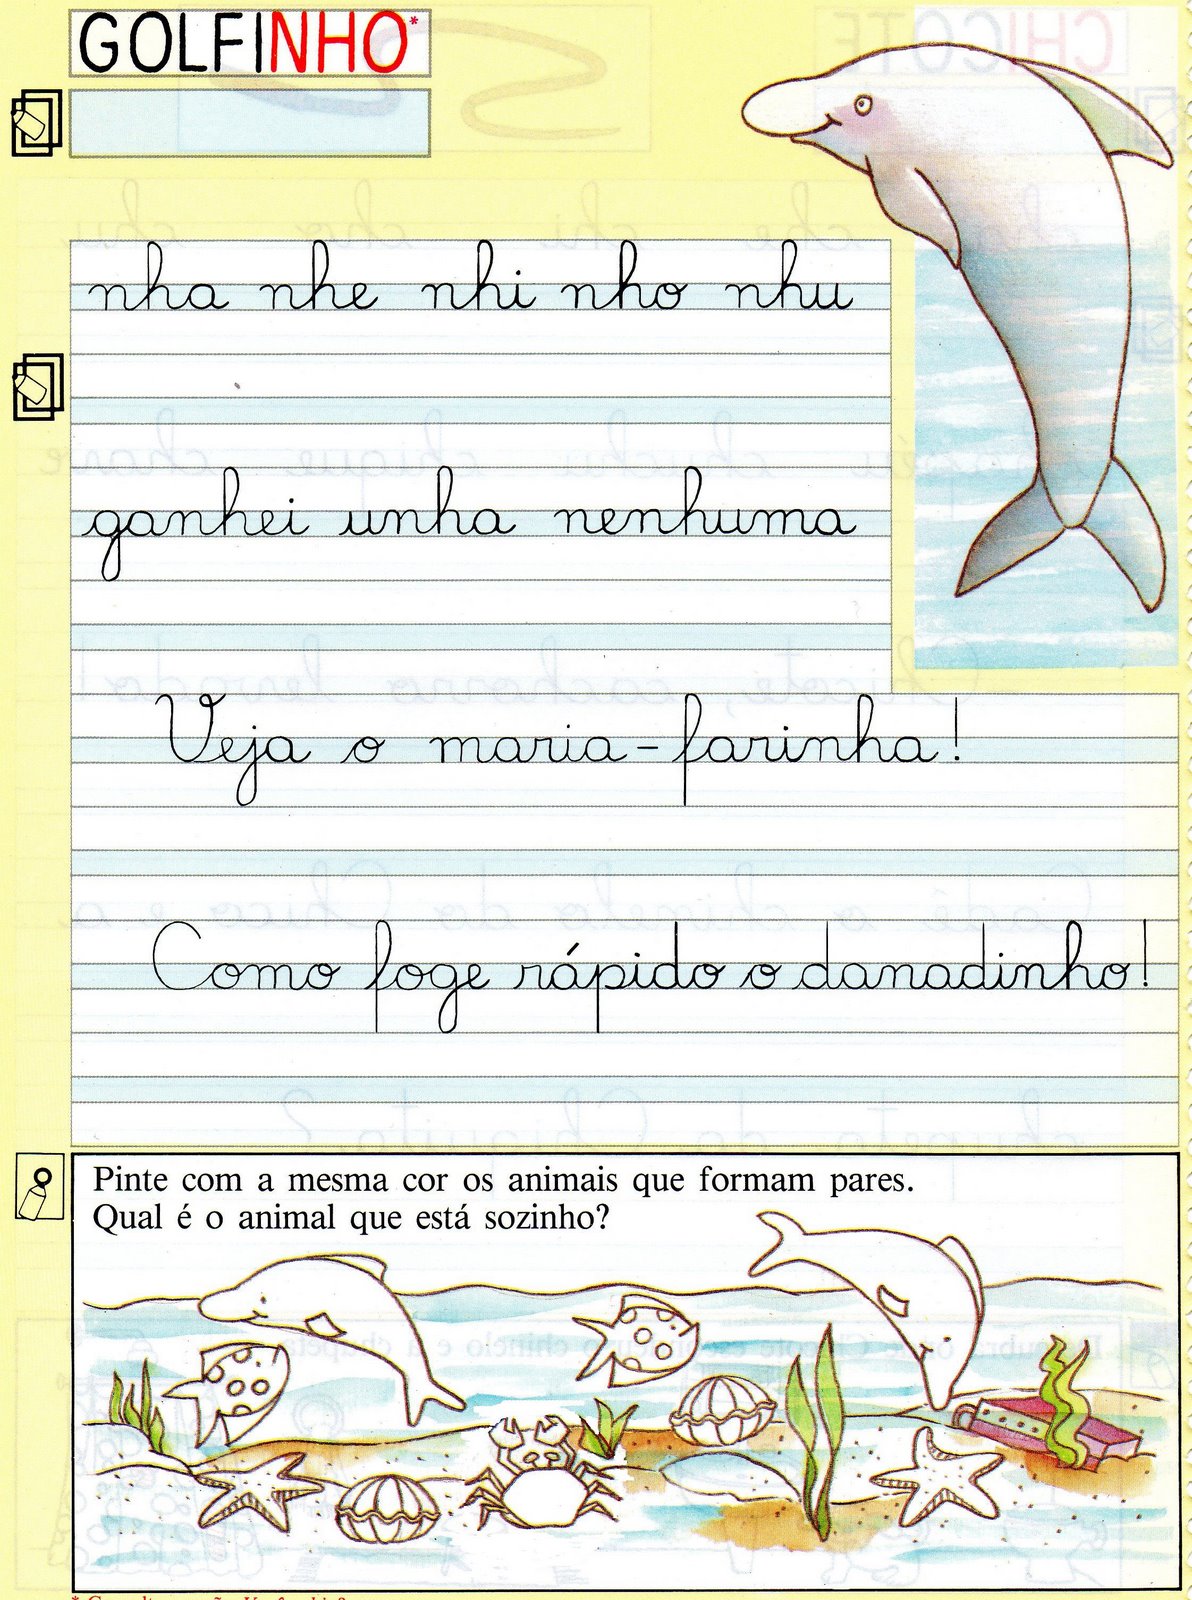 GOLFINHO*
nha nhe nhi nho nhu
ganhei unha nenhuma
Veja o maria-farinha!
Como foge rápido o danadinho!
Pinte com a mesma cor os animais que formam pares.
Qual é o animal que está sozinho?